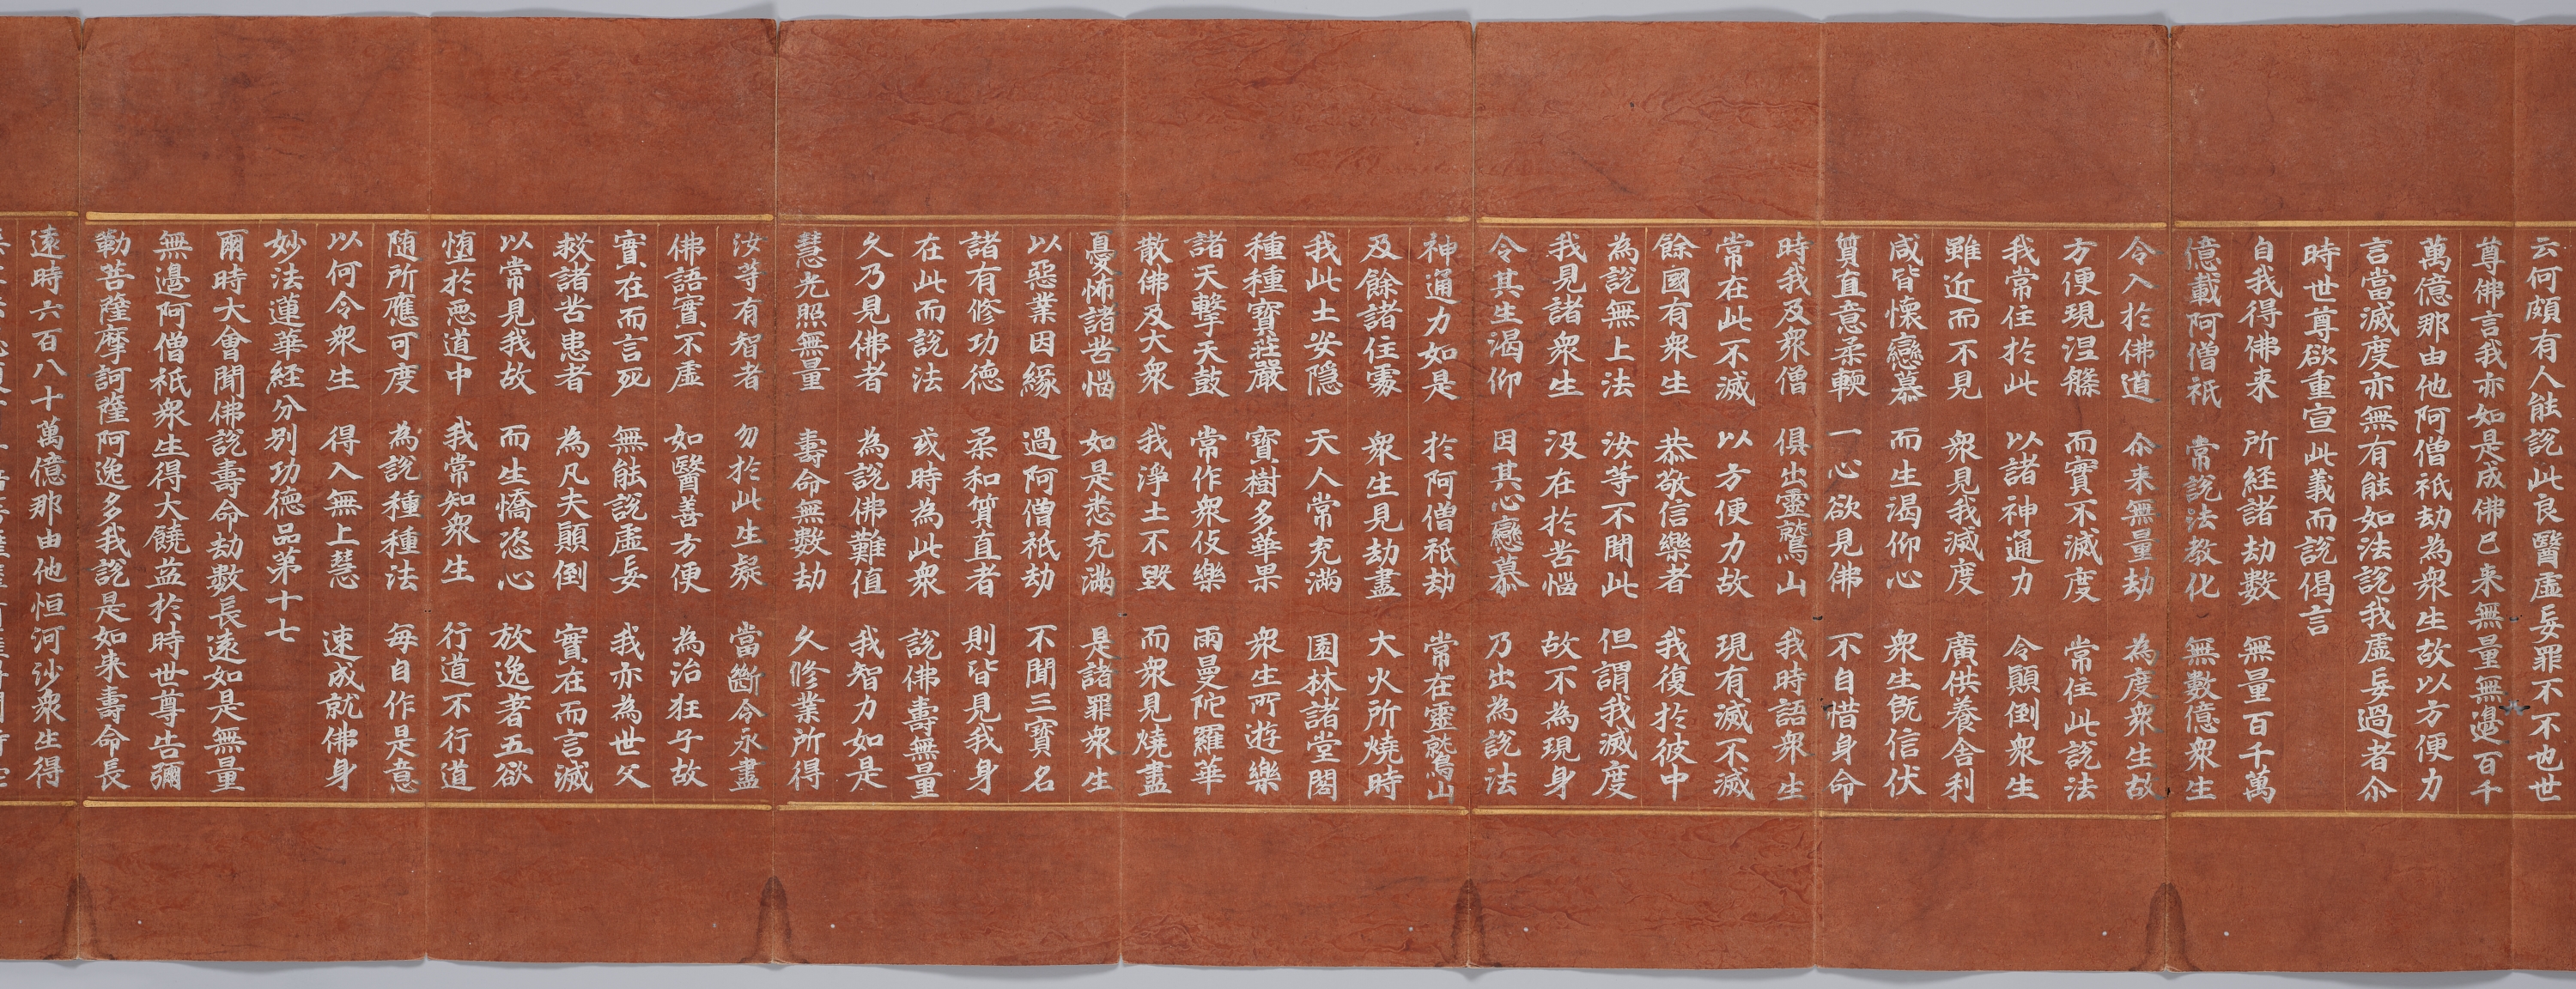 云何頗有人能說此良醫虛妄罪不不也世
尊佛言我亦如是成佛已来無量無邊百千
萬億那由他阿僧祇劫為衆生故以方便力
言當滅度亦無有能如法說我虛妄過者尒
時世尊欲重宣此義而說偈言
自我得佛来　所経諸劫數　無量百千萬
億載阿僧祇　常說法教化　無數億衆生
令入於佛道　尒来無量劫　為度衆生故
方便現涅槃　而實不滅度　常住此說法
我常住於此　以諸神通力　令顛倒衆生
雖近而不見　衆見我滅度　廣供養舍利
咸皆懷戀慕　而生渴仰心　衆生旣信伏
質直意柔輭　一心欲見佛　不自惜身命
時我及衆僧　俱出靈鷲山　我時語衆生
常在此不滅　以方便力故　現有滅不滅
餘國有衆生　恭敬信樂者　我復於彼中
為說無上法　汝等不聞此　但謂我滅度
我見諸衆生　没在於苦惱　故不為現身
令其生渴仰　因其心戀慕　乃出為說法
神通力如是　於阿僧祇劫　常在靈鷲山
及餘諸住處　衆生見劫盡　大火所燒時
我此土安隱　天人常充滿　園林諸堂閣
種種寶莊嚴　寶樹多華果　衆生所遊樂
諸天擊天鼓　常作衆伎樂　雨曼陀羅華
散佛及大衆　我淨土不毀　而衆見燒盡
憂怖諸苦惱　如是悉充滿　是諸罪衆生
以惡業因緣　過阿僧祇劫　不聞三寶名
諸有修功德　柔和質直者　則皆見我身
在此而說法　或時為此衆　說佛壽無量
久乃見佛者　為說佛難值　我智力如是
慧光照無量　壽命無數劫　久修業所得
汝等有智者　勿於此生疑　當斷令永盡
佛語實不虛　如醫善方便　為治狂子故
實在而言死　無能說虛妄　我亦為世父
救諸苦患者　為凡夫顛倒　實在而言滅
以常見我故　而生憍恣心　放逸著五欲
堕於惡道中　我常知衆生　行道不行道
随所應可度　為說種種法　每自作是意
以何令衆生　得入無上慧　速成就佛身
妙法蓮華経分別功德品第十七
爾時大會聞佛說壽命劫數長遠如是無量
無邊阿僧祇衆生得大饒益於時世尊告彌
勒菩薩摩訶薩阿逸多我說是如来壽命長
遠時六百八十萬億那由他恒河沙衆生得